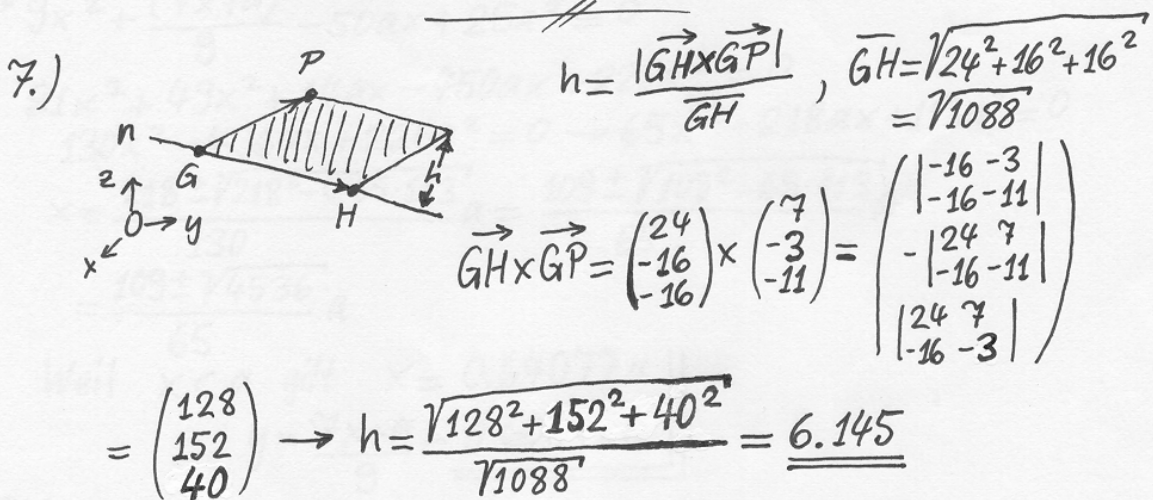 7.)
P
n
G
H
h
z
O
y
x
h = |GH⃗ × GP⃗| / G̅H̅ , G̅H̅ = √(24² + 16² + 16²)
= √1088
GH⃗ × GP⃗ = (24 -16 -16) × (7 -3 -11) = ( |-16 -3 -16 -11| -|24 7 -16 -11| |24 7 -16 -3| )
= (128 152 40) → h = √(128² + 152² + 40²) / √1088 = 6.145